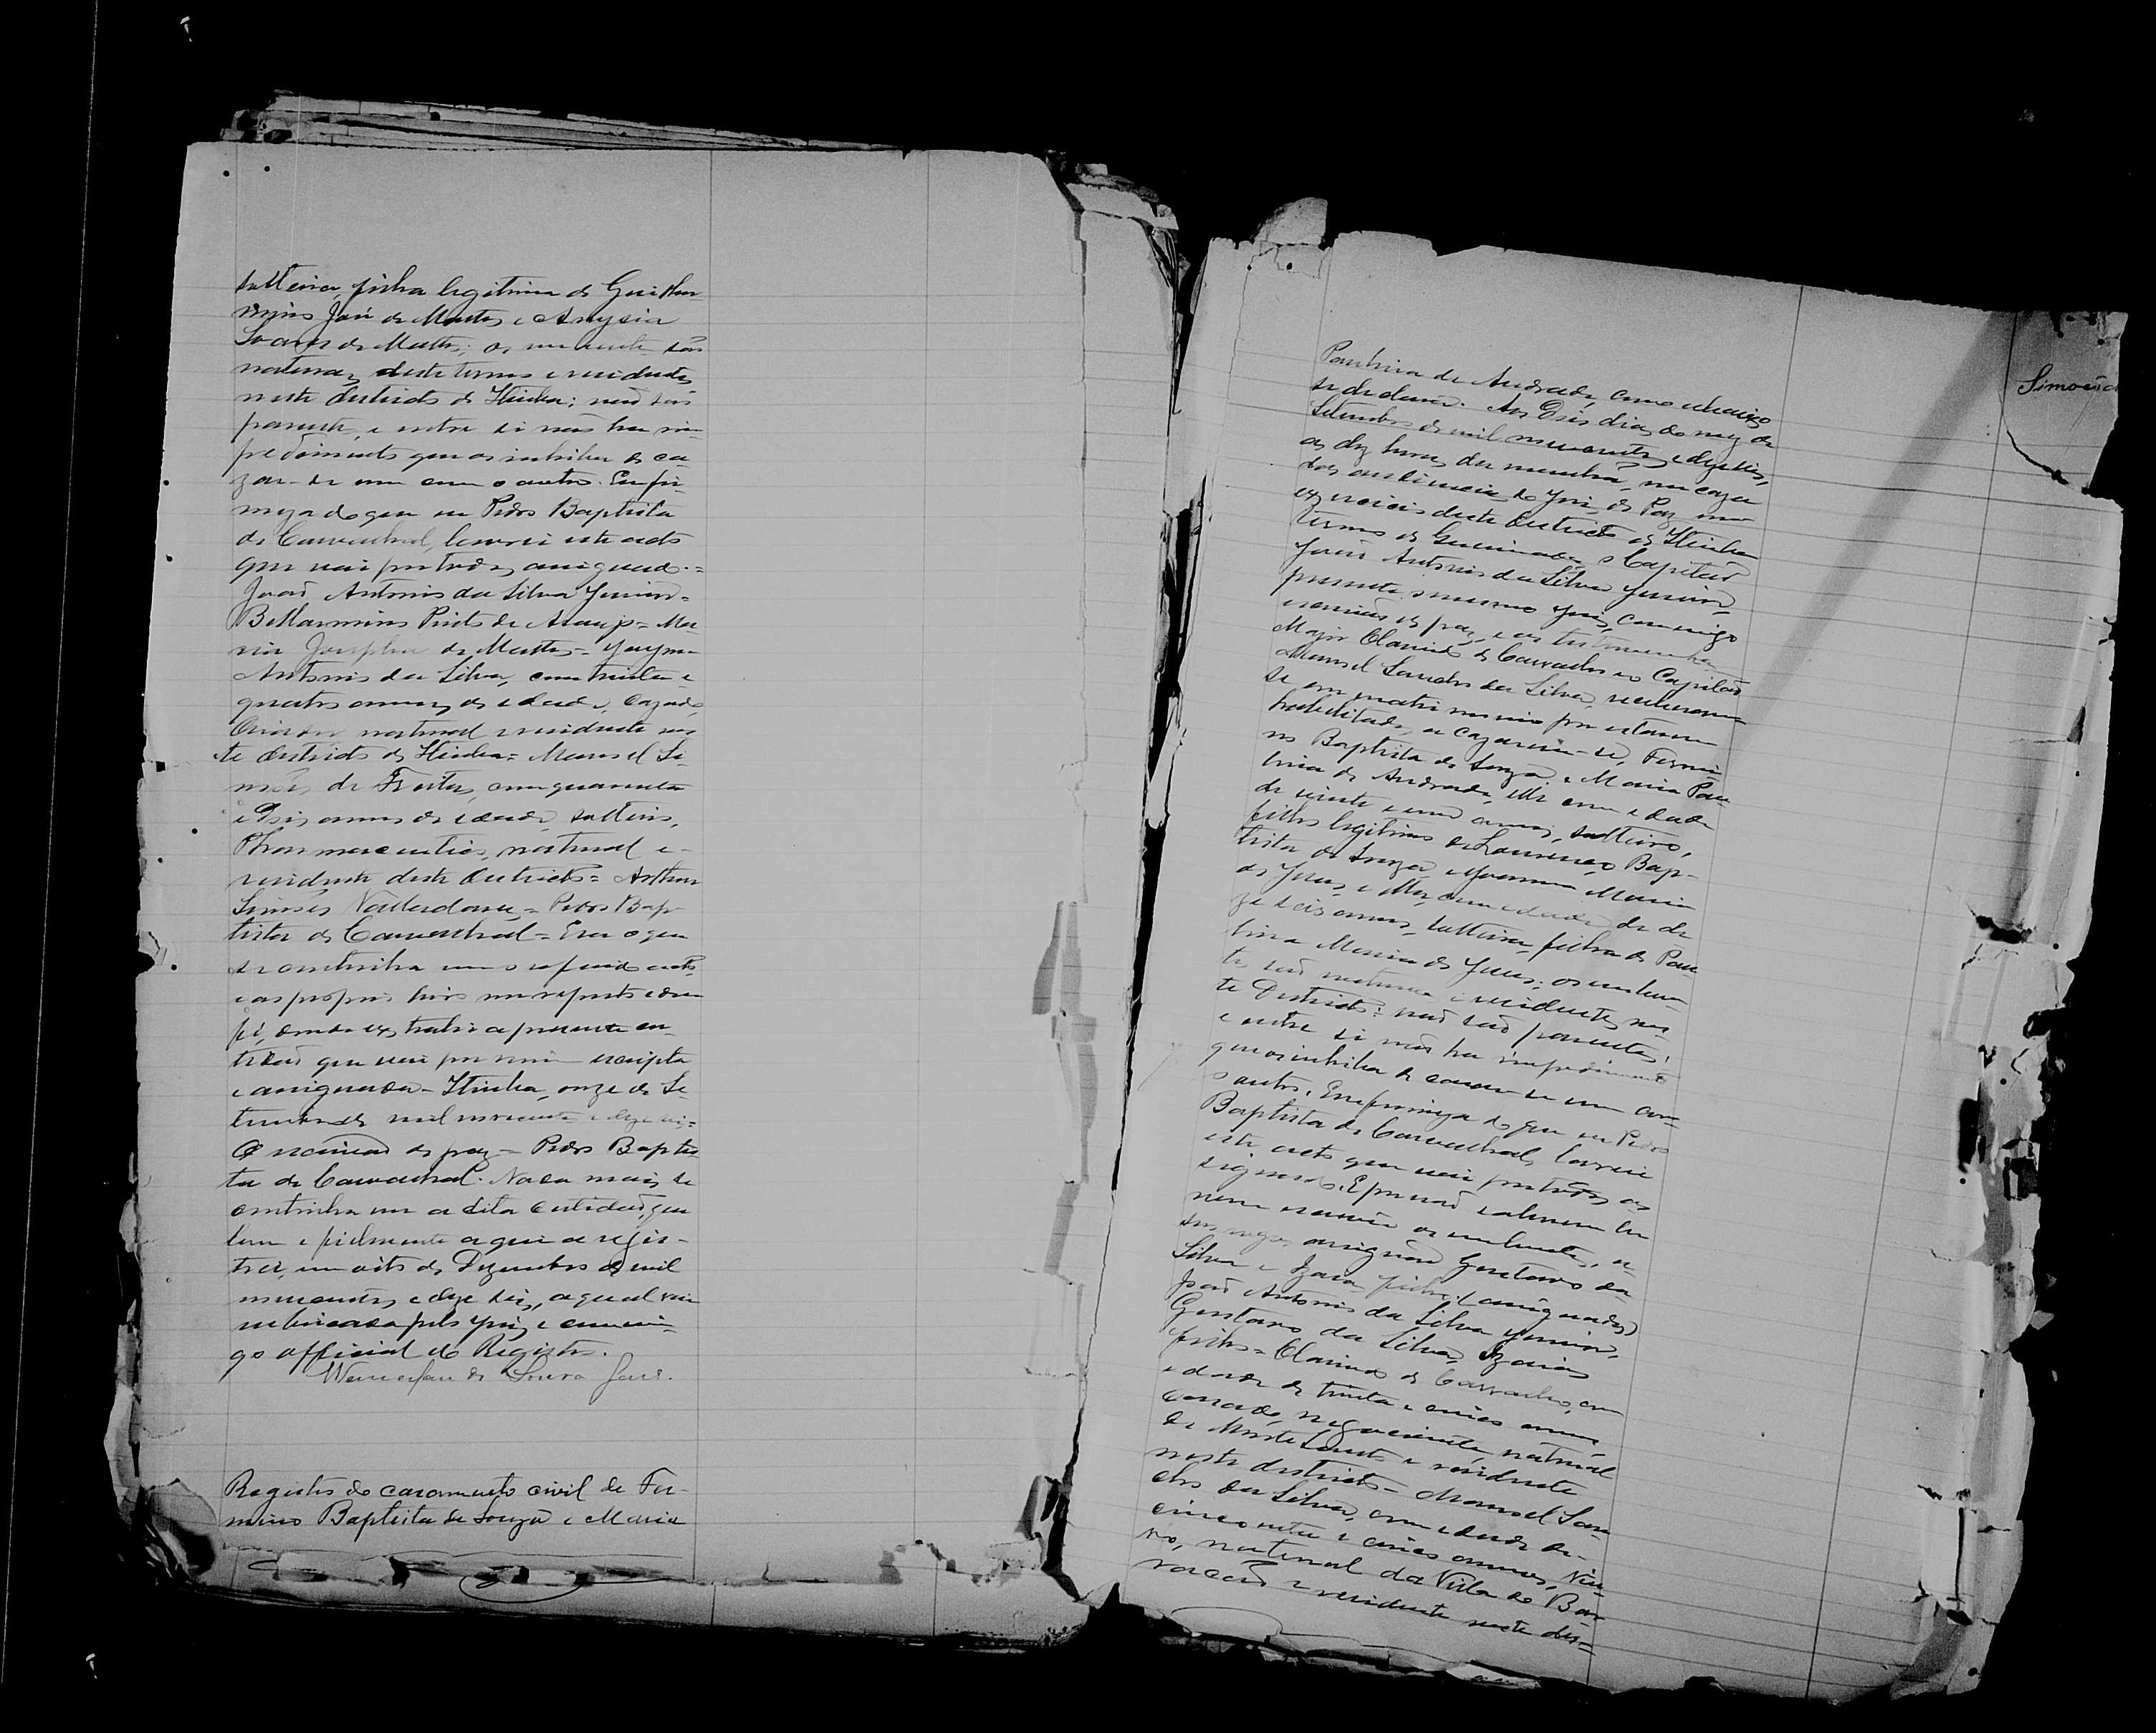 solteira, filha legitima de Guilher-
mino José de Mattos e Anysia
Soares de Mattos; os nubentes são
naturaes deste termo e residentes
neste districto de Itiuba; não são
parentes, e entre si não ha im-
pedimento que os inhiba de ca-
zar-se um com o outro. Em fir-
meza do que eu Pedro Baptista
de Carvalhal, lavrei este acto
que vai por todos assignado.=
João Antonio da Silva Junior=
Bellarmino Pinto de Araujo= Ma-
ria Josepha de Mattos=
Antonio da Silva, com trinta e
quatro annos de edade, cazado,
Criador natural e residente nes-
te districto de Itiuba= Manoel Si-
mões de Freitas, com quarenta
e dois annos de edade, solteiro,
Pharmaceutico, natural e
residente deste districto= Arthur
Simões = Pedro Bap-
tista de Carvalhal= Era o que
se continha em o referido acto
e ao proprio livro me reporto e dou
fé, donde extrahi a presente cer-
tidão que vai por mim escripta
e assignada= Itiuba, onze de Se-
tembro de mil novecentos e dezeseis=
O escrivão de paz= Pedro Baptis-
ta de Carvalhal. Nada mais se
continha em a dita certidão, que
bem e fielmente aqui a regis-
trei, em oito de Dezembro de mil
novecentos e dezeseis, a qual vai
rubricada pelo Juiz e commi-
go official do Registro.
de Souza
Registro do casamento civil de Fir-
mino Baptista de Souza e Maria
Simões
Paulina de Andrade, como abaixo
se declara. Aos dois dias do mez de
Setembro de mil novecentos e dezeseis,
as dez horas da manhã, na caza
das audiencias do Juiz de Paz em
exercicio deste districto de Itiuba
termo de Queimadas, o Capitão
João Antonio da Silva Junior,
presente o mesmo Juiz, commigo
escrivão de paz, e as testemunhas
Major Clarindo de Carvalho e o Capitão
Manoel Sancho da Silva, receberam-
se em matrimonio por estarem
habilitados a cazarem-se, Firmi-
no Baptista de Souza e Maria Pau-
lina de Andrade, elle com edade
de vinte e um annos, solteiro,
filho legitimo de Lourenço Bap-
tista de Souza e Joanna Maria
de Jesus, e ella, com edade de de-
zeseis annos, solteira, filha de Pau-
lina Maria de Jesus; os nuben-
tes são naturaes e residentes nes-
te Districto; não são parentes,
e entre si não ha impedimento
que os inhiba de casar-se um com
o outro. Em firmeza do que eu Pedro
Baptista de Carvalhal, lavrei
este acto que vai por todos as-
signado. E por não saberem ler
nem escrever os nubentes, a
seu rogo assignão Gustavo da
Silva e Izaias filho. (assignados)
João Antonio da Silva Junior,
Gustavo da Silva, Izaias
filho= Clarindo de Carvalho, com
edade de trinta e cinco annos
casado, negociante, natural
de Monte Santo e residente
neste districto= Manoel San-
cho da Silva, com edade de
cincoenta e cinco annos, viu-
vo, natural da Villa do Bom
e residente neste dis=